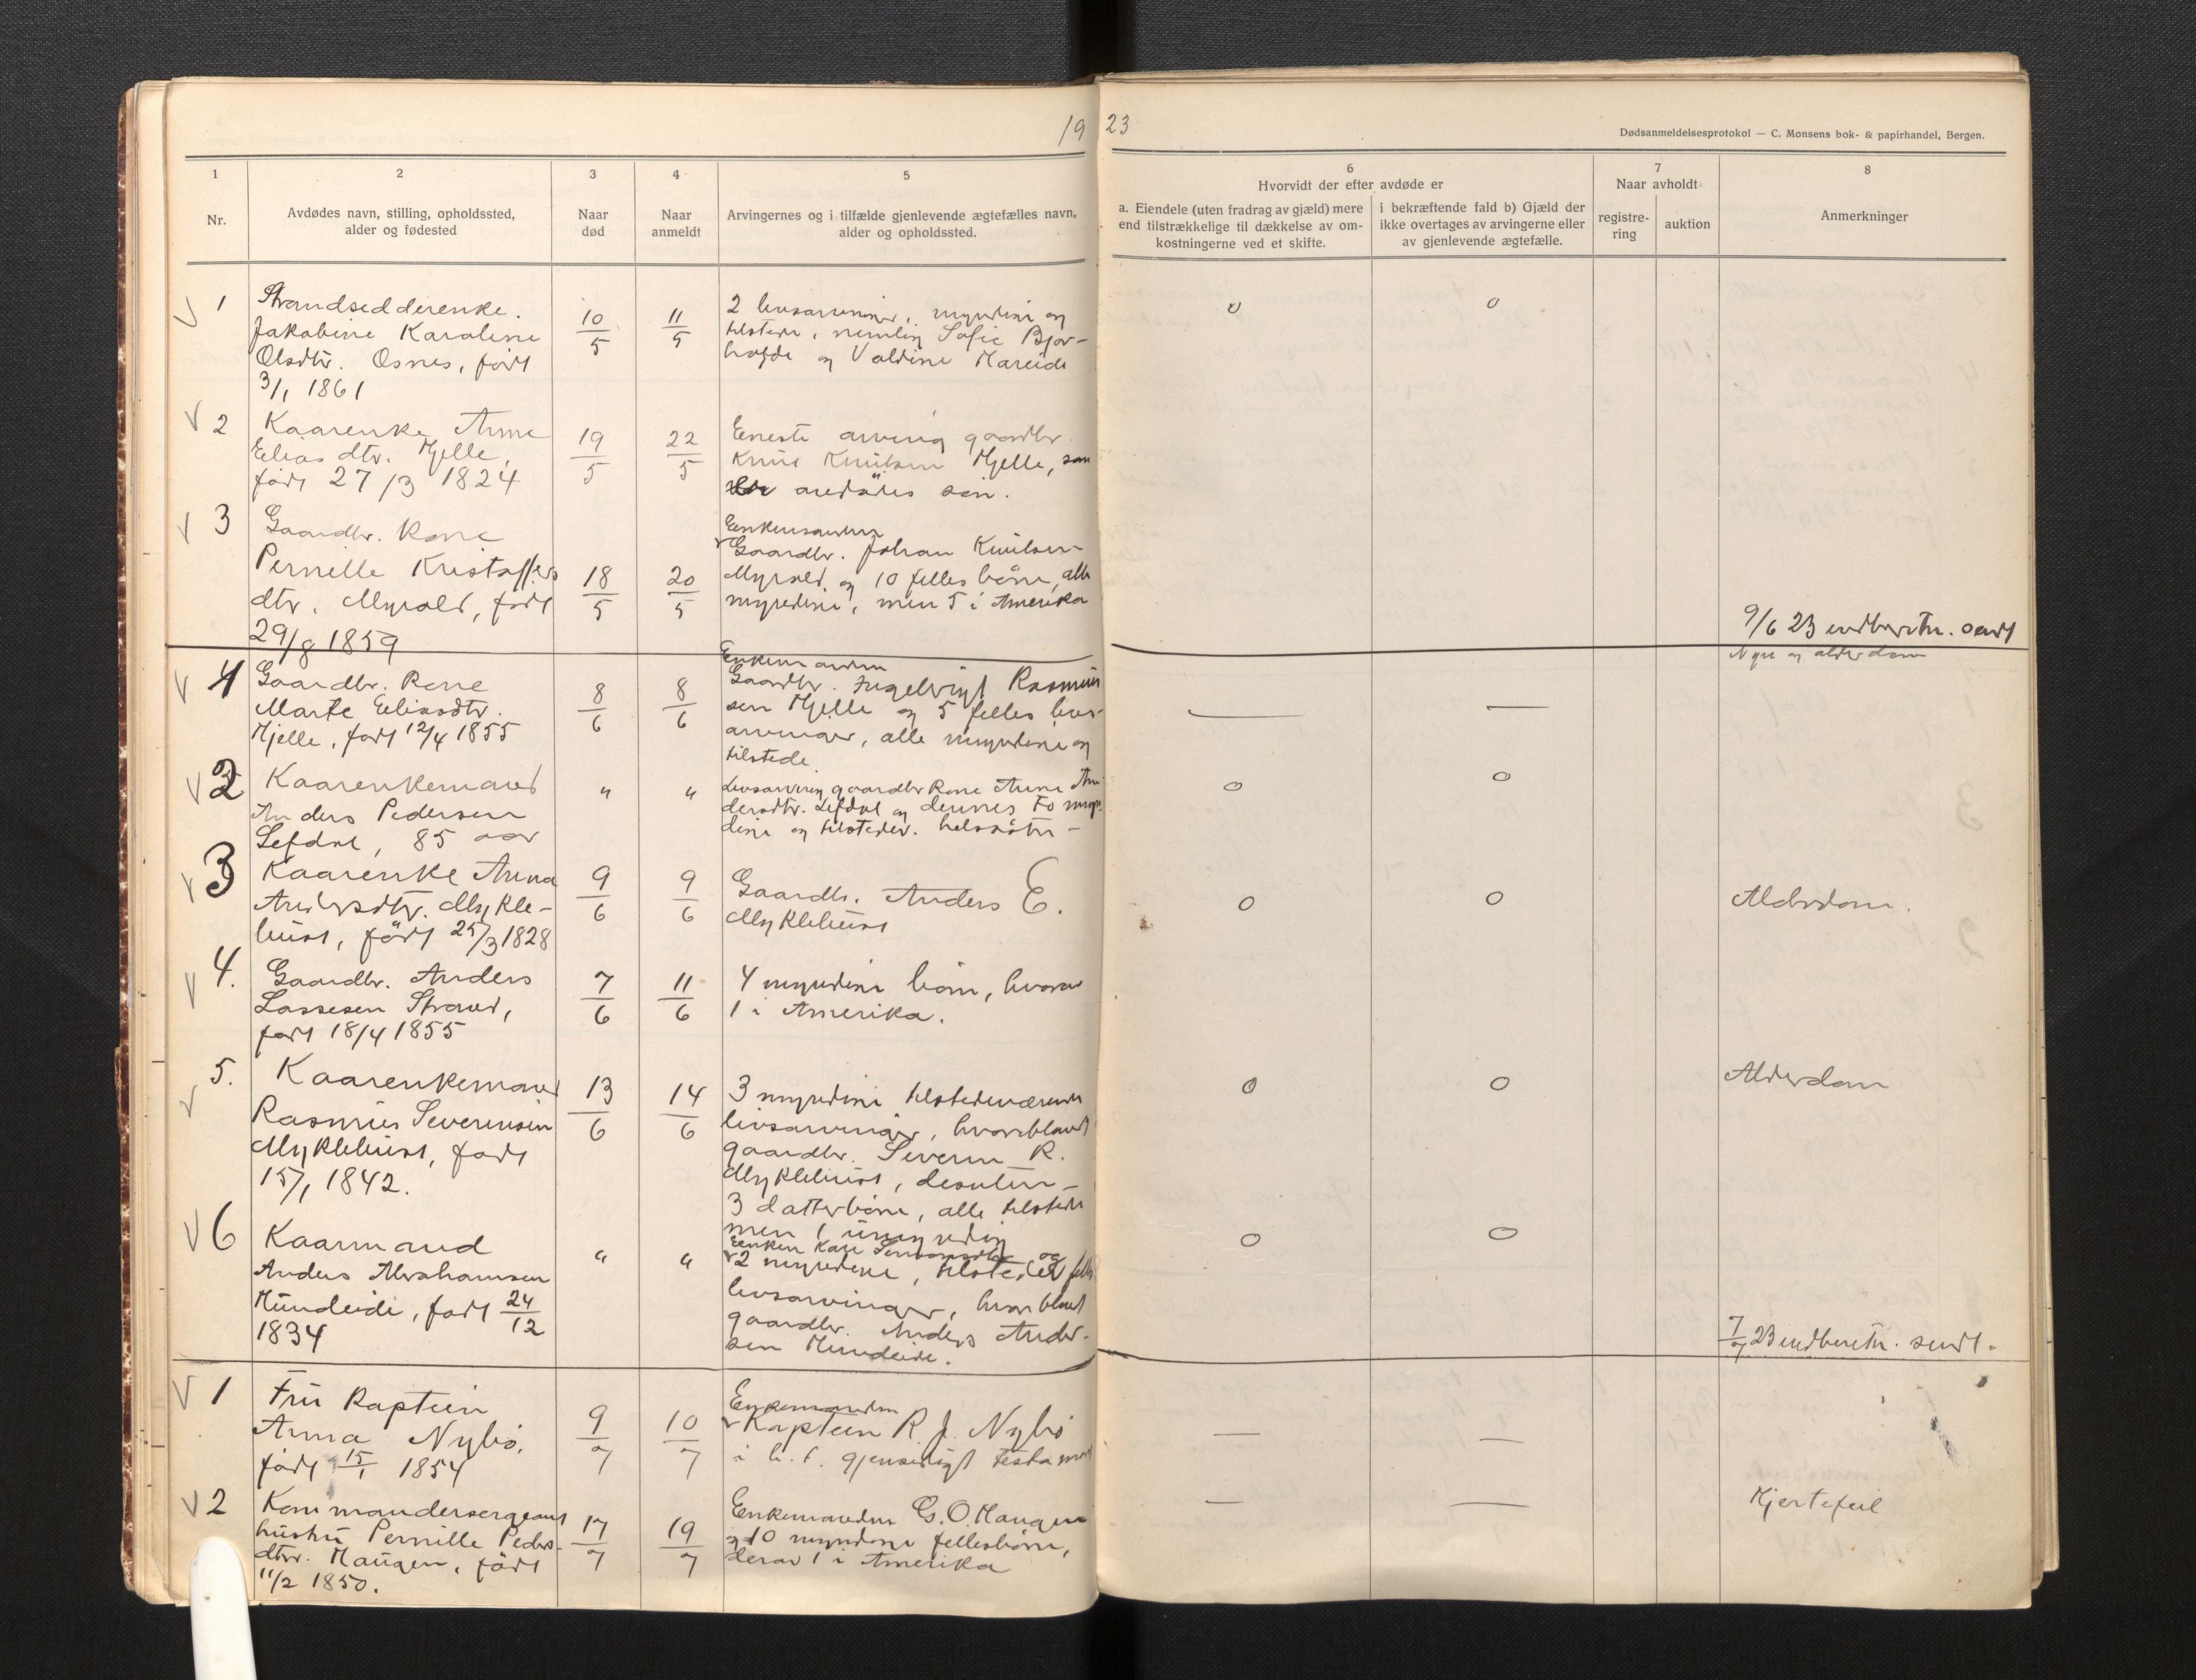 19 23
Dødsanmeldelsesprotokol — C. Monsens bok- & papirhandel, Bergen.
1
2
3
4
5
6
7
8
Nr.
Avdødes navn, stilling, opholdssted,
alder og fødested
Naar
død
Naar
anmeldt
Arvingernes og i tilfælde gjenlevende ægtefælles navn,
alder og opholdssted.
Hvorvidt der efter avdøde er
a. Eiendele (uten fradrag av gjæld) mere
end tilstrækkelige til dækkelse av om-
kostningerne ved et skifte.
i bekræftende fald b) Gjæld der
ikke overtages av arvingerne eller
av gjenlevende ægtefælle.
Naar avholdt
registre-
ring
auktion
Anmerkninger
1
Strandsedderenke.
Jakobine Karoline
Olsdtr. Osnes, født
3/1 1861
10/5
11/5
2 livsarvinger, myndine og
tilstede, nemlig Sofie Bjør-
Valdine Hareide
0
0
2
Kaarenke Anne
Eliasdtr. Hjelle,
født 27/3 1824
19/5
22/5
Eeneste arving gaardbr.
Knut Knutsen Hjelle, som
avdødes søn.
3
Gaardbr. kone
Pernille Kristoffers
dtr. Myrold, født
29/8 1859
18/5
20/5
Enkemanden
Gaardbr. Johan Knutsen
Myrold og 10 felles børn, alle
myndine, men 5 i Amerika
9/6 23 indberetn. sendt
4
Gaardbr. kone
Marte Eliasdtr.
Hjelle, født 12/4 1855
8/6
8/6
Enkemanden
Gaardbr. Ingebrigt Rasmus
sen Hjelle og 5 felles livs-
arvinger, alle myndine og
tilstede.
Nyre og alderdom
2
Kaarenkemand
Anders Pedersen
Lefdal, 85 aar
"
"
Livsarving gaardbr kone Anne An
dersdtr. Lefdal og dennes to myn
dine og tilstedev. helsøstre
0
0
3
Kaarenke Anna
Andersdtr. Mykle-
bust, født 25/3 1828
9/6
9/6
Gaardbr. Anders E.
Myklebust
0
0
Alderdom.
4.
Gaardbr. Anders
Lassesen Strand,
født 18/4 1855
7/6
11/6
4 myndine børn, hvorav
1 i Amerika.
5.
Kaarenkemand
Rasmus Severinsen
Myklebust, født
15/1 1842.
13/6
14/6
3 myndine tilstedeværende
livsarvinger, hvoriblandt
gaardbr. Severin R.
Myklebust, desuten
3 datterbørn, alle tilstede
men 1 umyndig
0
0
Alderdom
6
Kaarmand
Anders Abrahamsen
Hundeidi, født 24/12
1834
"
"
Enken Kari
2 myndine, tilstedev. felles
livsarvinger, hvoriblandt
gaardbr. Anders Ander-
sen Hundeide.
0
0
7/7 23 indberetn. sendt.
1
Fru Kaptein
Anna Nybø,
født 15/1 1854
9/7
10/7
Enkemanden
Kaptein R. J. Nybø
i h. t. gjensidigt testament
2
Kommandersergeant
hustru Pernille Peders-
dtr. Haugen, født
11/2 1850.
17/7
19/7
Enkemanden G. O. Haugen
og 10 myndine fellesbørn,
derav 1 i Amerika
Hjertefeil